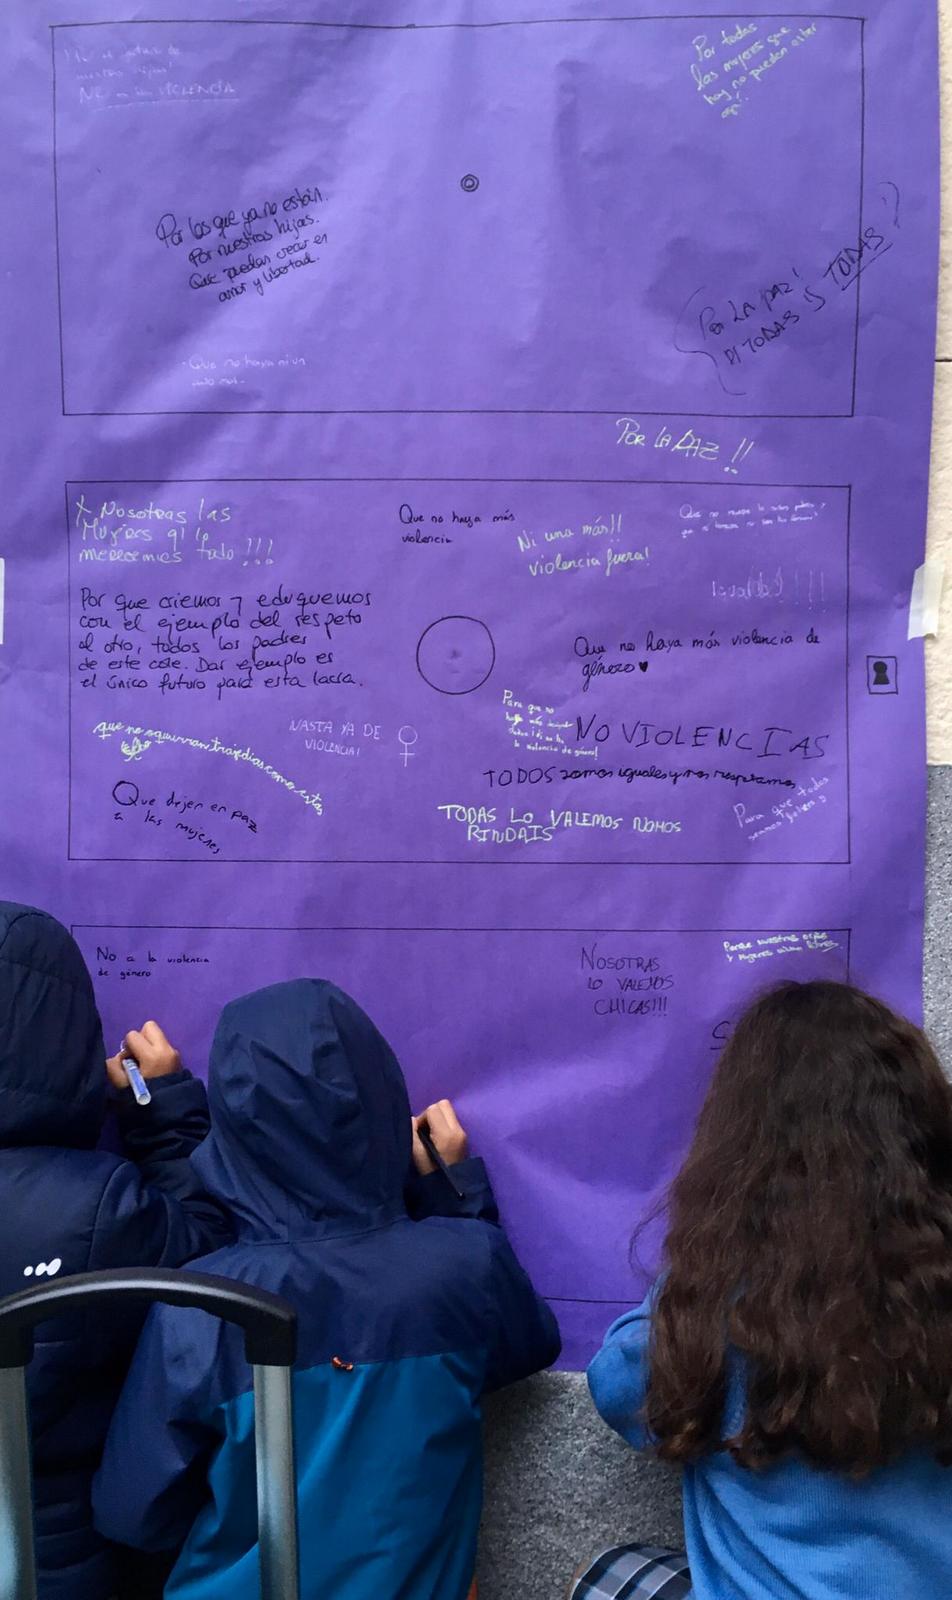 NO a la VIOLENCIA
Por todas
las mujeres que
hoy no pueden estar
aquí!
Por las que ya no están.
Por nuestras hijas.
Que puedan crecer en
amor y libertad.
Por LA PAZ!
DI TODAS IS TODAS
- Que no haya ni un
POR LA PAZ!!
X Nosotras las
Mujeres q lo
merecemos todo!!!
Que no haya más
violencia
Ni una más!!
violencia fuera!
Igualdad!!!!
Por que criemos y eduquemos
con el ejemplo del respeto
al otro, todos los padres
de este cole. Dar ejemplo es
el único futuro para esta lacra.
Que no haya más violencia de
género ♥
Para que no
haya más
la violencia de género!
NO VIOLENCIAS
que no ocurran tragedias como estas
NASTA YA DE
VIOLENCIA!
TODOS somos iguales y nos respetamos
Que dejen en paz
a las mujeres
TODAS LO VALEMOS NOMOS
RINDAIS
Para que todas
seamos
No a la violencia
de género
NOSOTRAS
LO VALEMOS
CHICAS!!!
Porque nuestras
y mujeres vivan libres
S